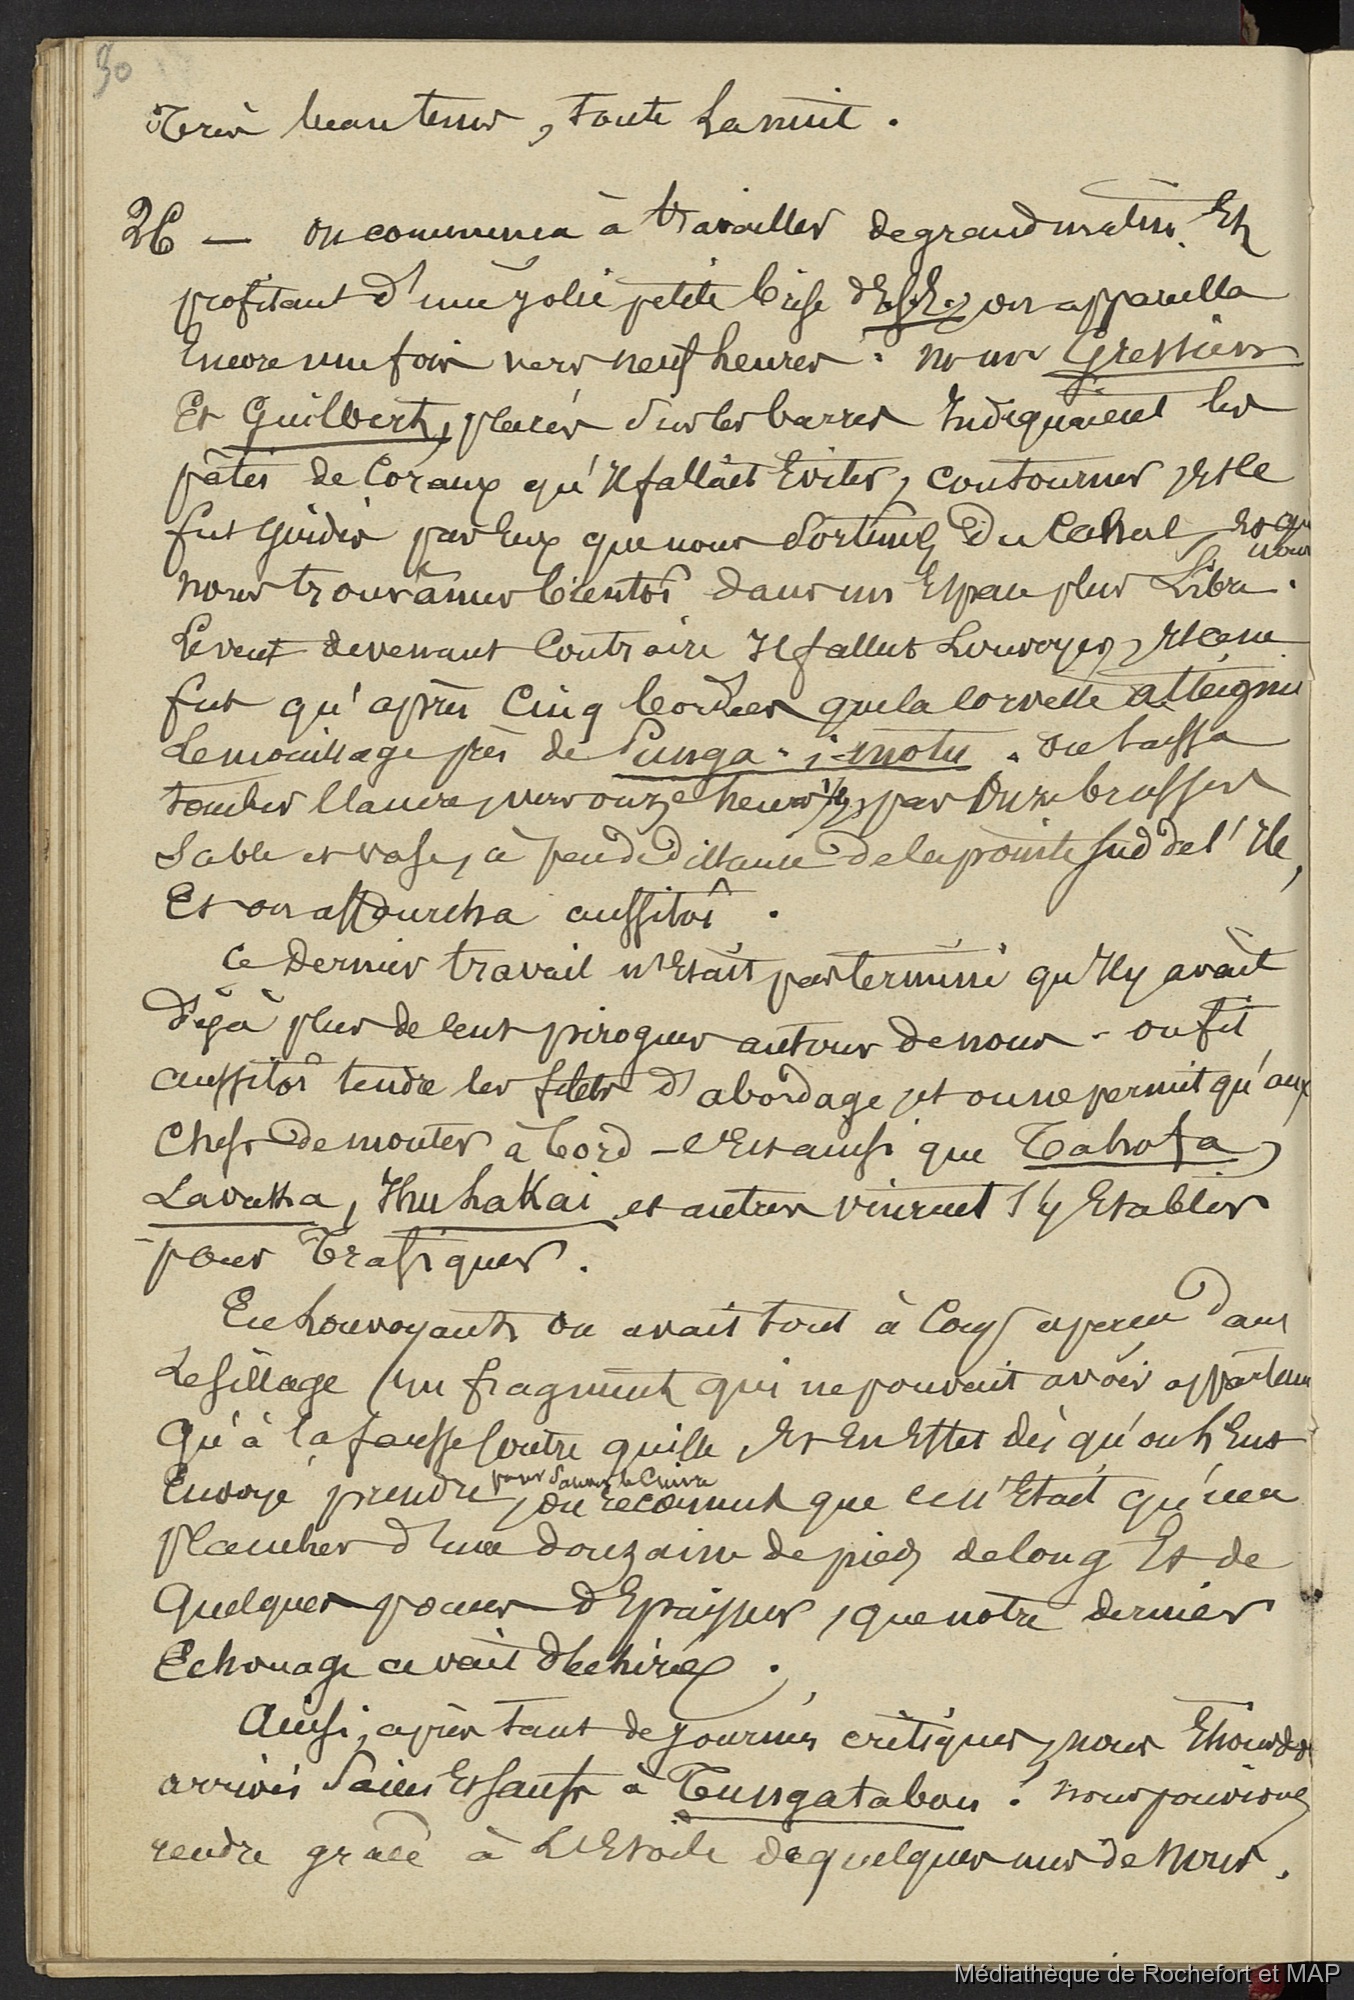 30
Très beau tems, toute la nuit.
26 — on commença à travailler de grand matin. Et
profitant d'une jolie petite brise d'E.S.E., on appareilla
Encore une fois vers neuf heures. Mrs Gressien
Et Guilbert, placés sur les barres Indiquaient les
pâtés de Coraux qu'Il fallait Eviter, contourner, et ce
fut guidés par Eux que nous sortîmes du Canal, et que
nous
nous trouvâmes bientôt dans un Espace plus Libre.
Le vent devenant Contraire Il fallut Louvoyer, et ce ne
fut qu'après Cinq bordées que la Corvette atteignit
Le mouillage près de Punga-i-motu. On laissa
tomber l'ancre, vers onze heures 1/2, par Onze brasses
Sable et vase, à peu de distance de la pointe sud de l'Ile,
Et on affourcha aussitôt.
Ce dernier travail n'était pas terminé qu'Il y avait
déjà plus de cent pirogues autour de nous. on fit
aussitôt tendre les filets d'abordage, et on ne permit qu'aux
Chefs de monter à bord - C'est ainsi que Tahofa,
Lavaka, Huhakai et autres vinrent s'y Etablir
pour Trafiquer.
En Louvoyant, on avait tout à Coup aperçu dans
Le sillage Un fragment qui ne pouvait avoir appartenu
Qu'à la fausse Contre quille, Et En Effet dès qu'on l'Eut
pour sauver le Cuivre
Envoyé prendre, on reconnut que ce n'Etait qu'un
plancher d'une douzaine de pieds de long Et de
Quelques pouces d'Epaisseur, que notre dernier
Echouage avait déchiré.
Ainsi, après tant de journées critiques, nous Etions
arrivés Sains Et Saufs à Tungatabou. Nous pouvions
rendre grâce à L'Etoile de quelques uns de Nous.
Médiathèque de Rochefort et MAP